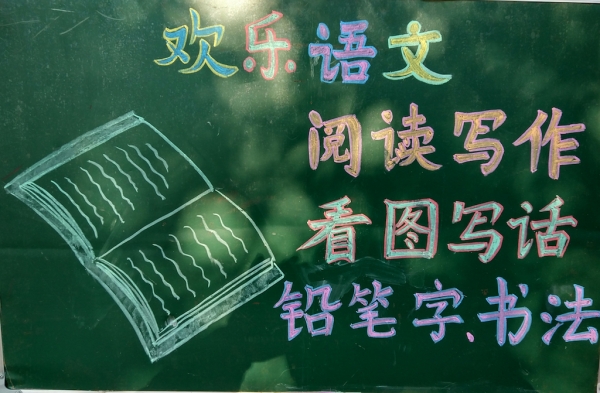 欢乐语文
阅读写作
看图写话
铅笔字、书法